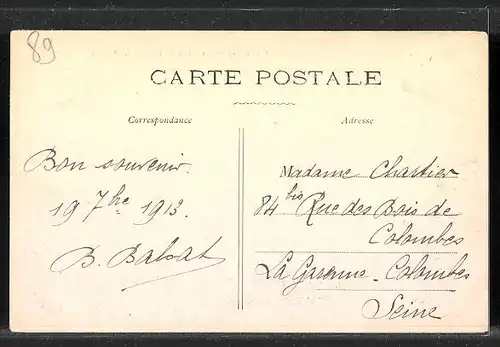 89
CARTE POSTALE
Correspondance
Adresse
Bon souvenir.
19 7bre 1913.
B. Balsat
Madame Chartier
84 bis Rue des Bois de
Colombes
La Garenne-Colombes
Seine